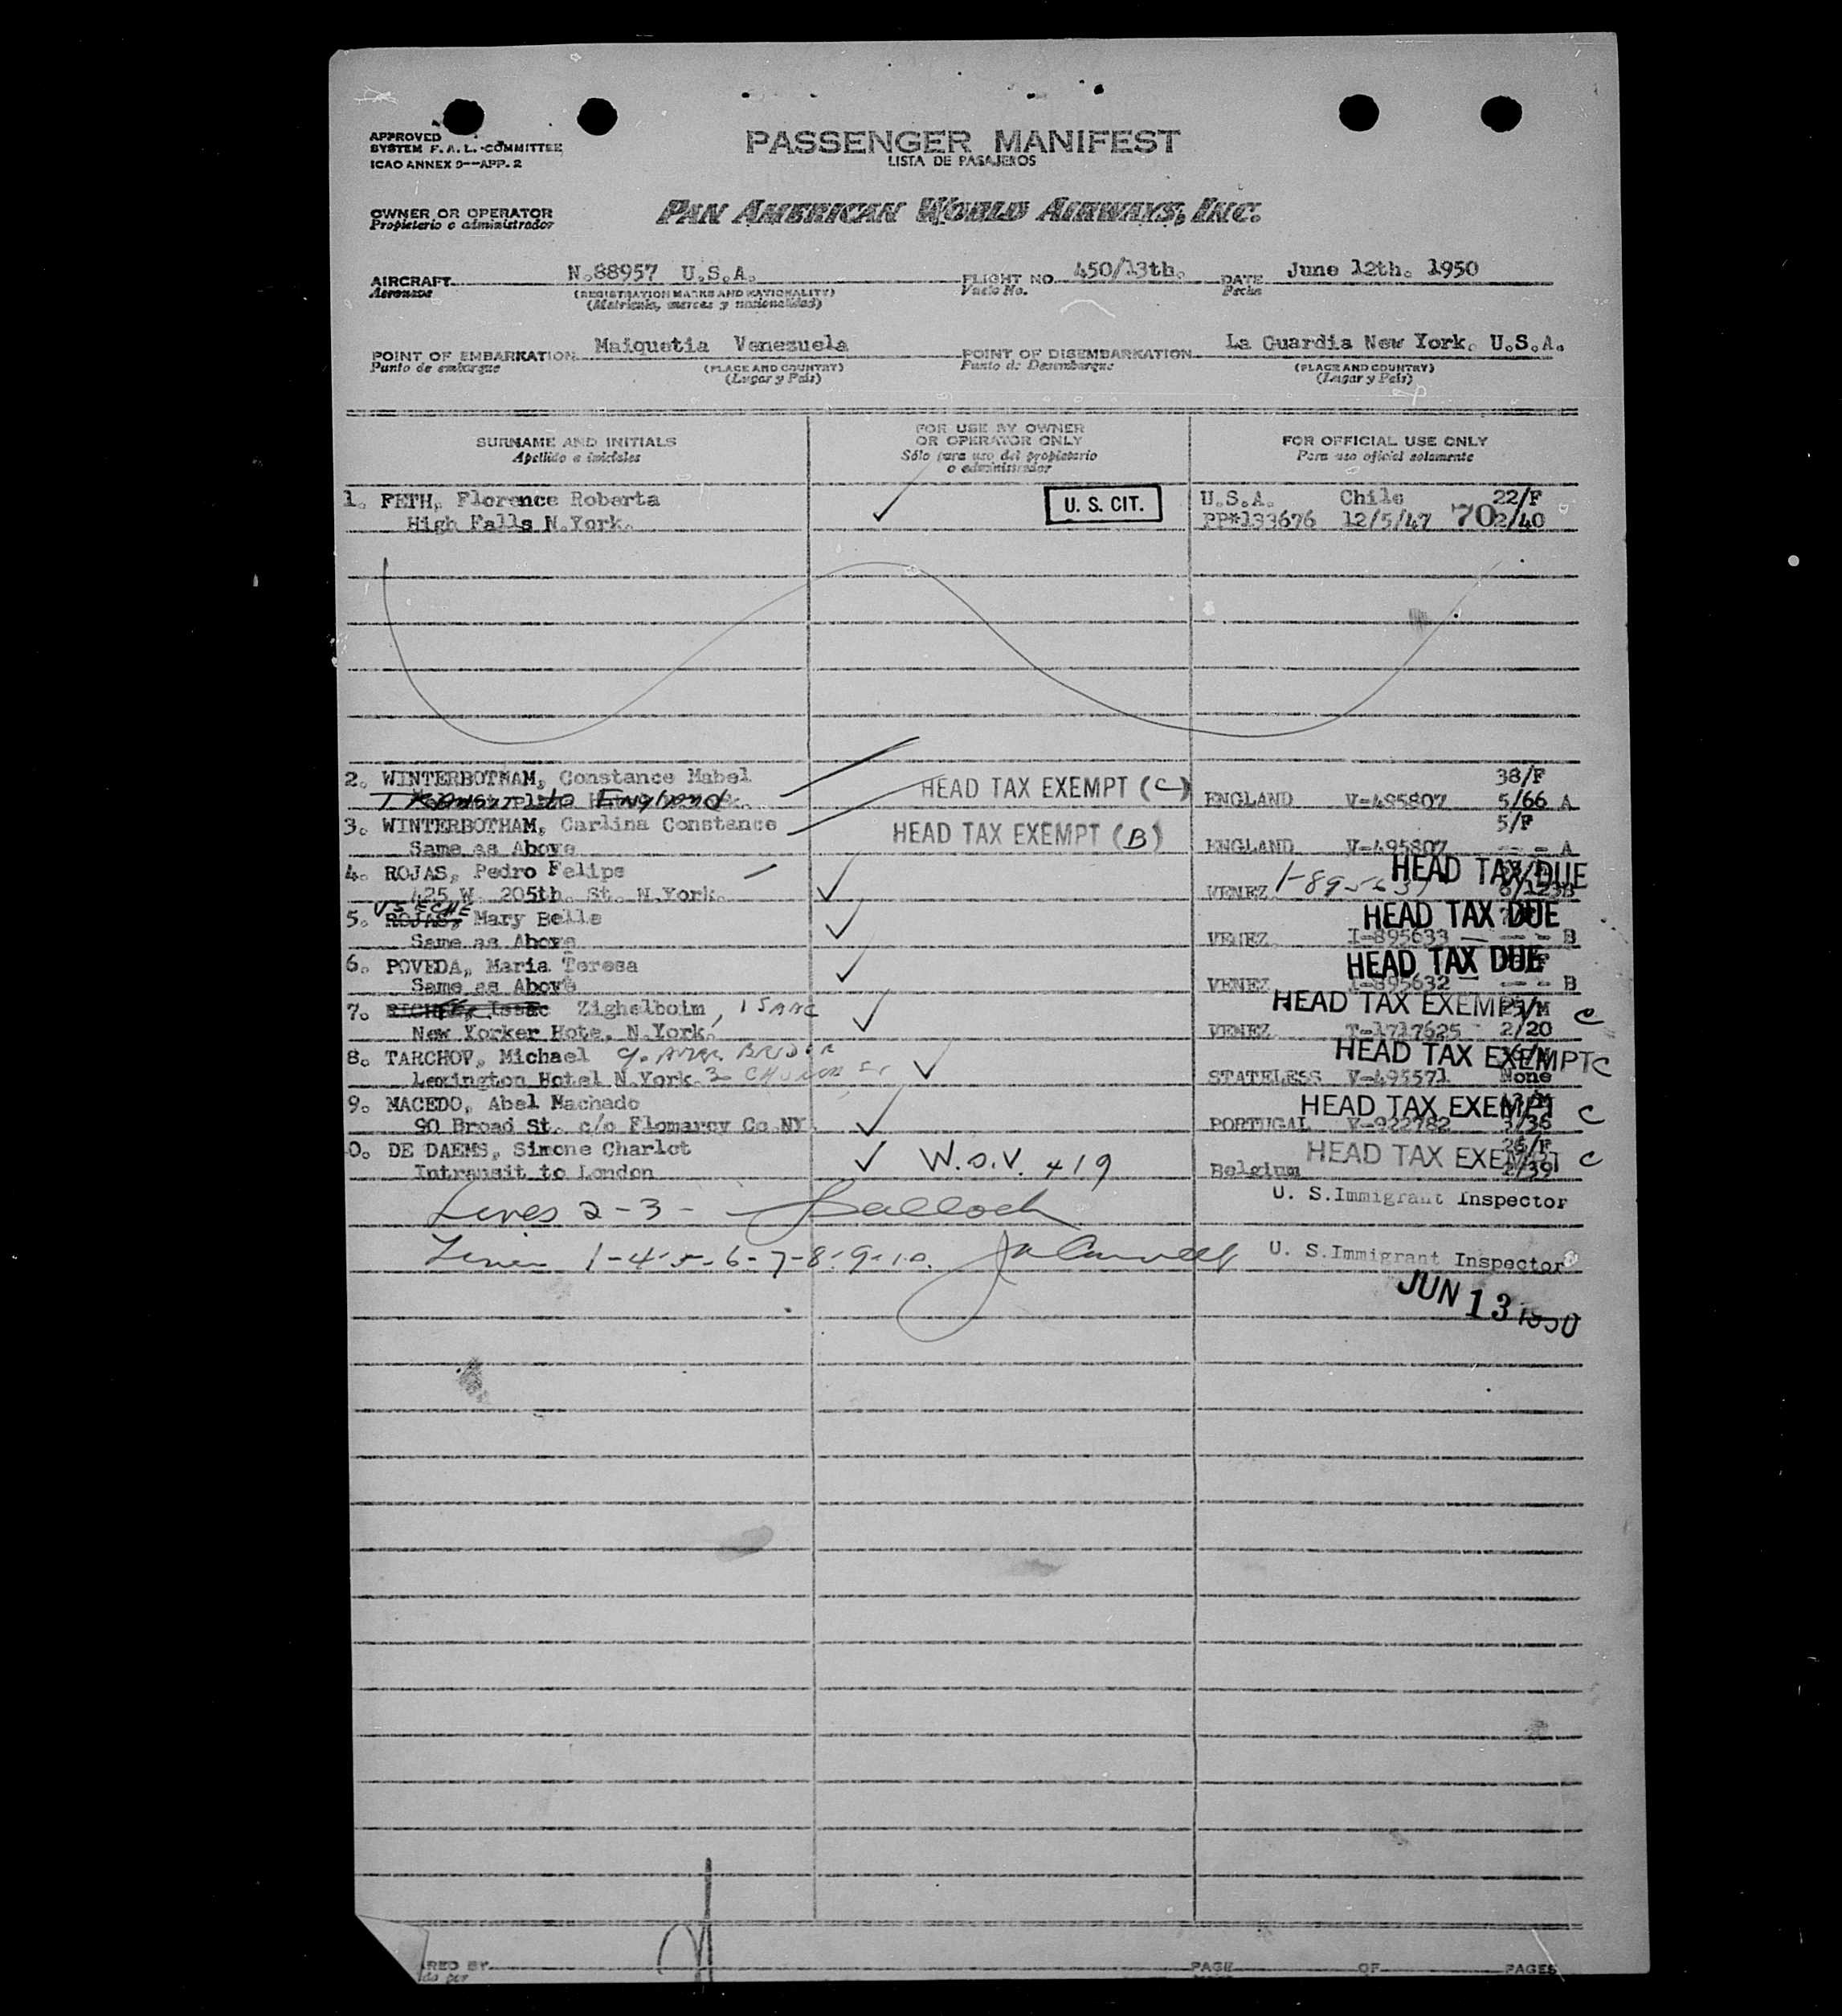 APPROVED
SYSTEM F. A. L. COMMITTEE
ICAO ANNEX 9—APP. 2
PASSENGER MANIFEST
LISTA DE PASAJEROS
OWNER OR OPERATOR
Propietario o administrador
PAN AMERICAN WORLD AIRWAYS, INC.
AIRCRAFT N.88957 U.S.A. FLIGHT NO. 450/13th. DATE June 12th. 1950
Aeronave (REGISTRATION MARKS AND NATIONALITY) Vuelo No. Fecha
(Matricula, marcas y nacionalidad)
POINT OF EMBARKATION Maiquetia Venezuela POINT OF DISEMBARKATION La Guardia New York. U.S.A.
Punto de embarque (PLACE AND COUNTRY) Punto de Desembarque (PLACE AND COUNTRY)
(Lugar y Pais) (Lugar y Pais)
SURNAME AND INITIALS FOR USE BY OWNER OR OPERATOR ONLY FOR OFFICIAL USE ONLY
Apellido e iniciales Sólo para uso del propietario o administrador Para uso oficial solamente
1. FETH, Florence Roberta U. S. CIT. U.S.A. Chile 22/F
High Falls N.York. PP#133676 12/5/47 702/40
2. WINTERBOTHAM, Constance Mabel HEAD TAX EXEMPT (C) 38/F
Transit to England ENGLAND V-495807 5/66 A
3. WINTERBOTHAM, Carlina Constance HEAD TAX EXEMPT (B) 5/F
Same as Above ENGLAND V-495807 - - - A
4. ROJAS, Pedro Felipe HEAD TAX DUE
425 W. 205th. St. N.York. VENEZ.
5. ROJAS, Mary Belle HEAD TAX DUE
Same as Above VENEZ. I-895633 - - - B
6. POVEDA, Maria Teresa HEAD TAX DUE
Same as Above VENEZ. I-895632 - - - B
7. Issac Zighelboim, ISAAC HEAD TAX EXEMPT C
New Yorker Hote, N.York. VENEZ. T-1717625 2/20
8. TARCHOV, Michael HEAD TAX EXEMPT C
Lexington Hotel N.York STATELESS V-495571 None
9. MACEDO, Abel Machado HEAD TAX EXEMPT C
90 Broad St. c/o Flomarcy Co NY. PORTUGAL V-922782 3/35
0. DE DAEMS, Simone Charlot HEAD TAX EXEMPT C
Intransit to London W.S.V. 419 Belgium 2/39
Lines 2-3- U. S. Immigrant Inspector
Lines 1-4-5-6-7-8-9-10. U. S. Immigrant Inspector
JUN 13 1950
ARED BY PAGE OF PAGES